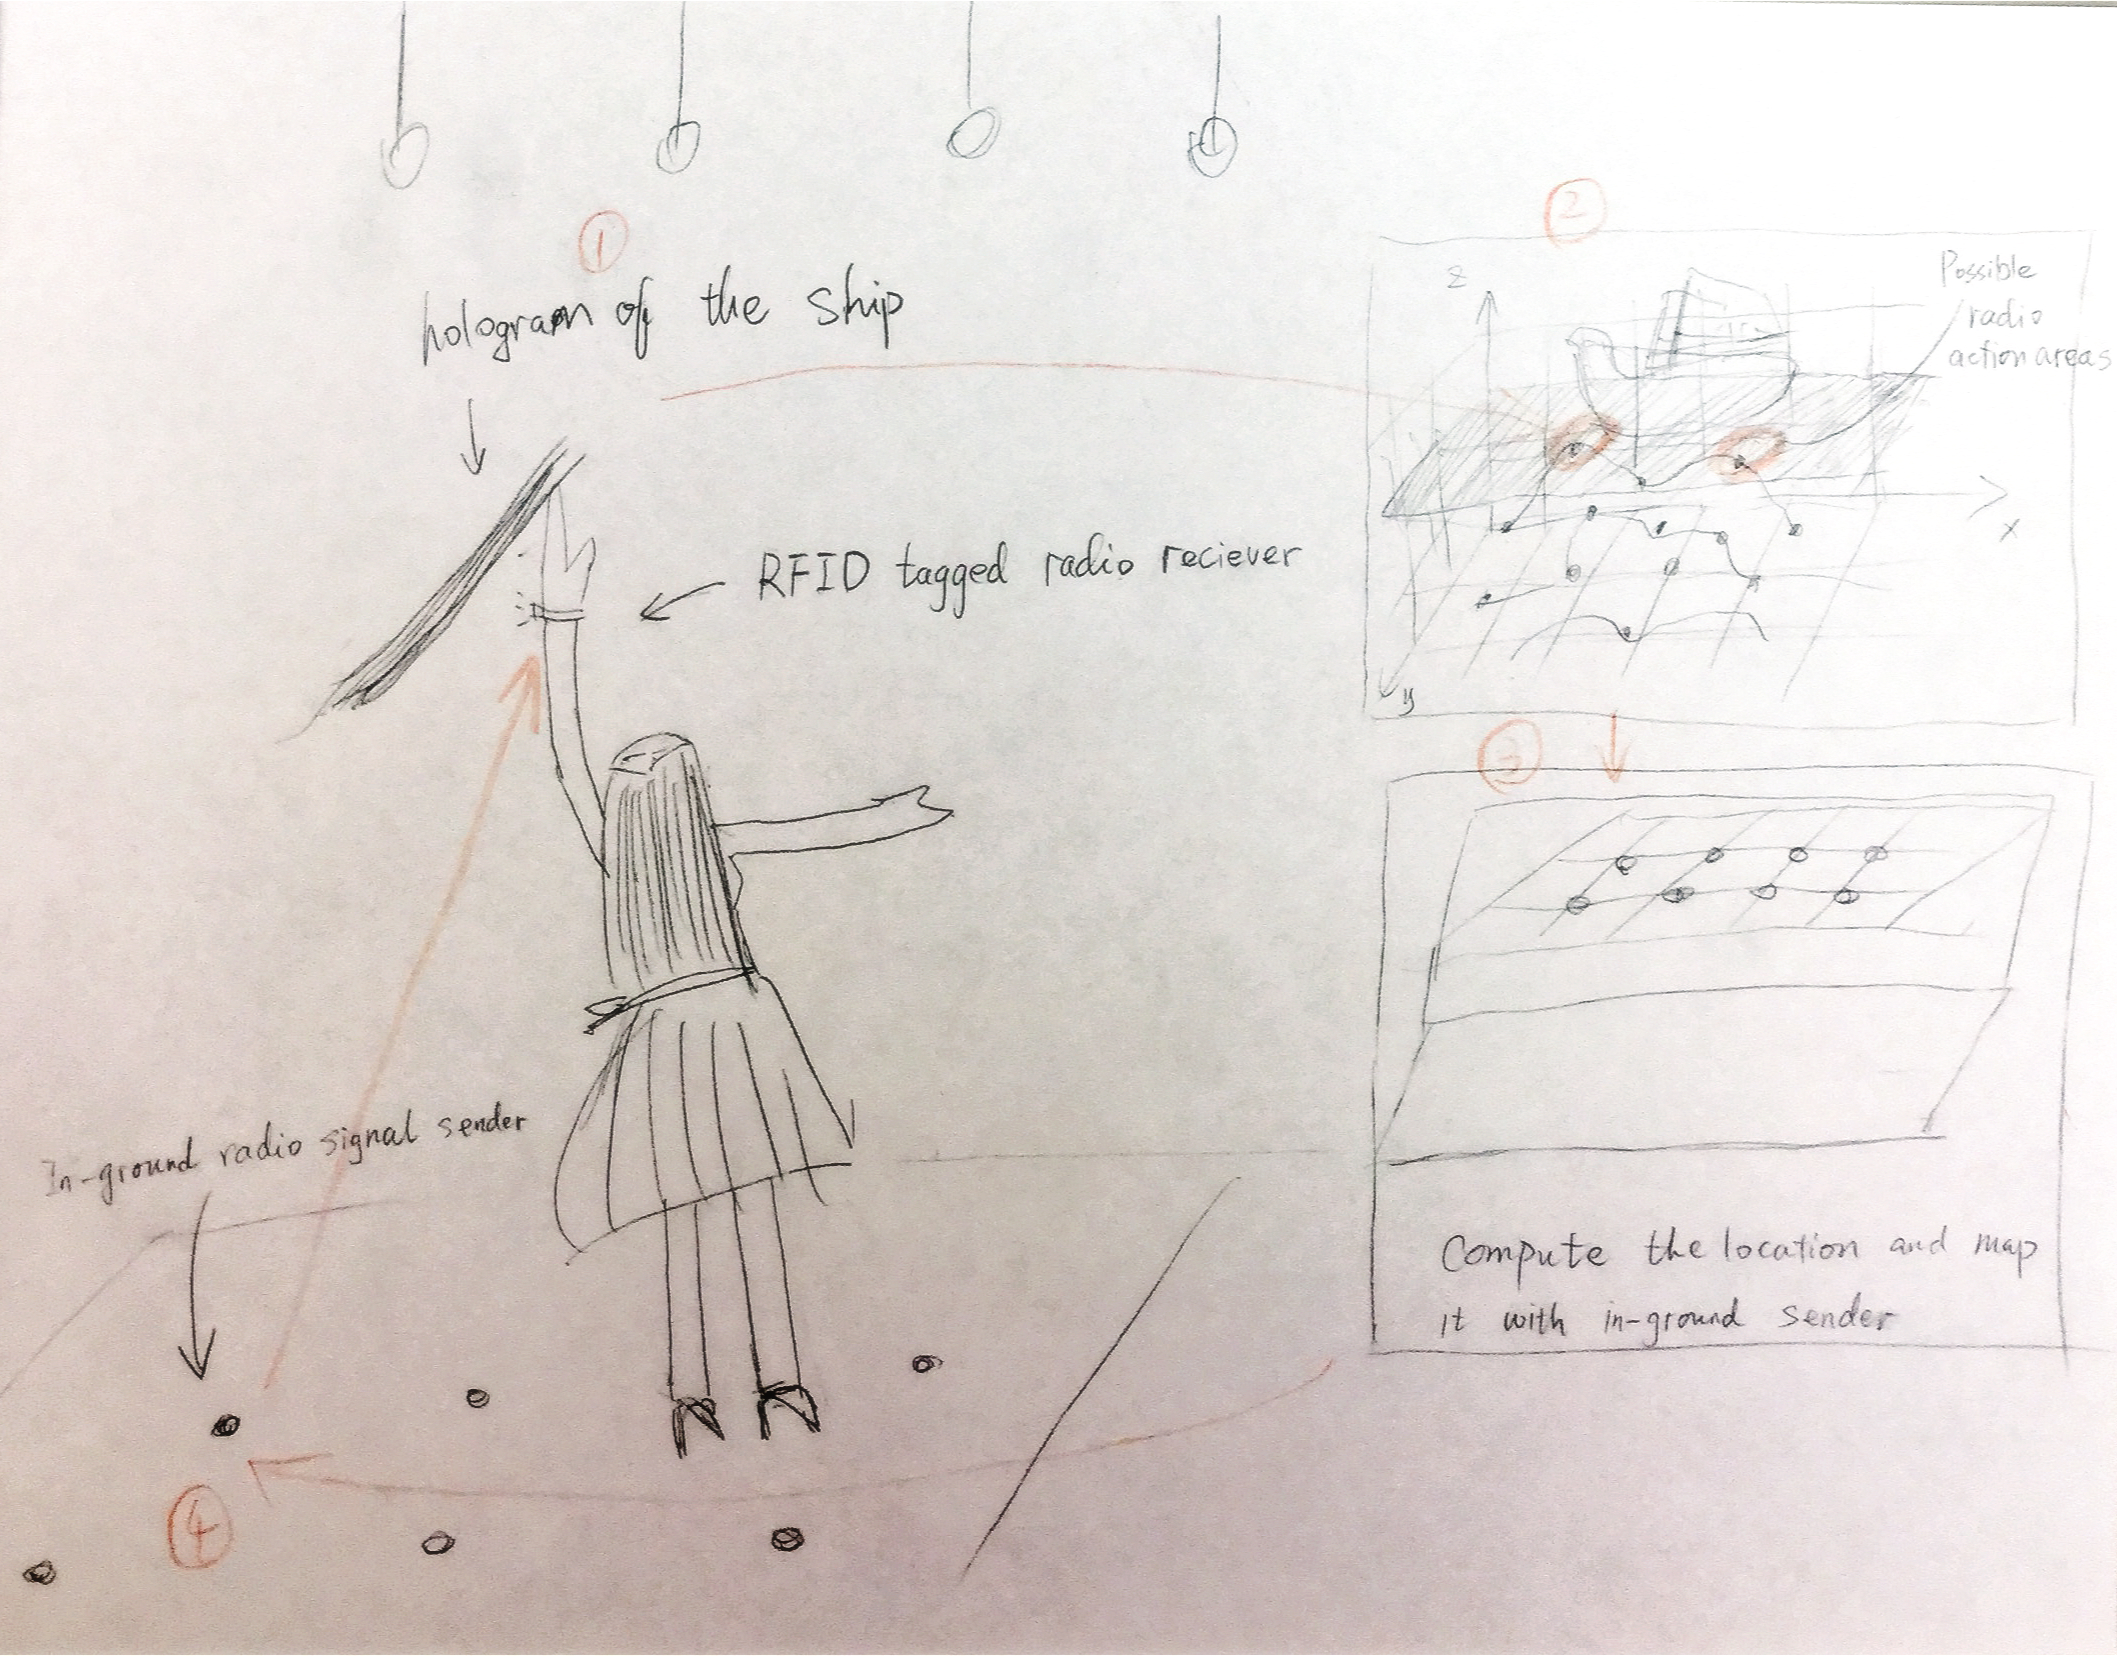 1
hologram of the ship
RFID tagged radio reciever
In-ground radio signal sender
4
2
z
Possible
radio
action areas
x
y
3
Compute the location and map
it with in-ground sender